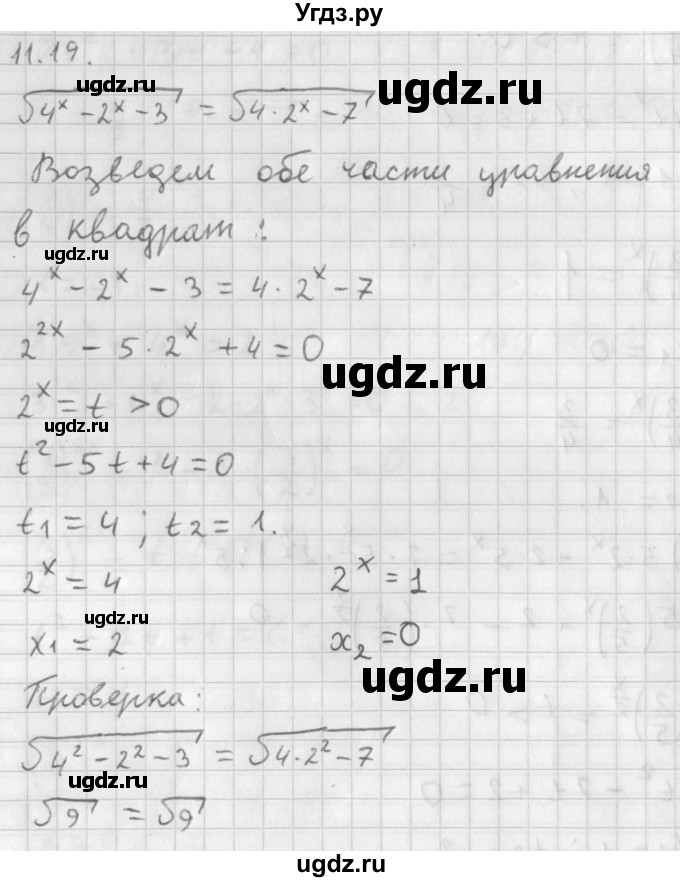 Угдз.ру
11.19.
ugdz.ru
√(4ˣ - 2ˣ - 3) = √(4 · 2ˣ - 7) ugdz.ru
Возведем обе части уравнения
в квадрат:
ugdz.ru
4ˣ - 2ˣ - 3 = 4 · 2ˣ - 7
2²ˣ - 5 · 2ˣ + 4 = 0
ugdz.ru
2ˣ = t > 0
ugdz.ru
t² - 5t + 4 = 0
t1 = 4; t2 = 1.
2ˣ = 4 2ˣ = 1
ugdz.ru
x1 = 2 x₂ = 0
ugdz.ru
Проверка:
√(4² - 2² - 3) = √(4 · 2² - 7)
ugdz.ru
√9 = √9
ugdz.ru
ugdz.ru